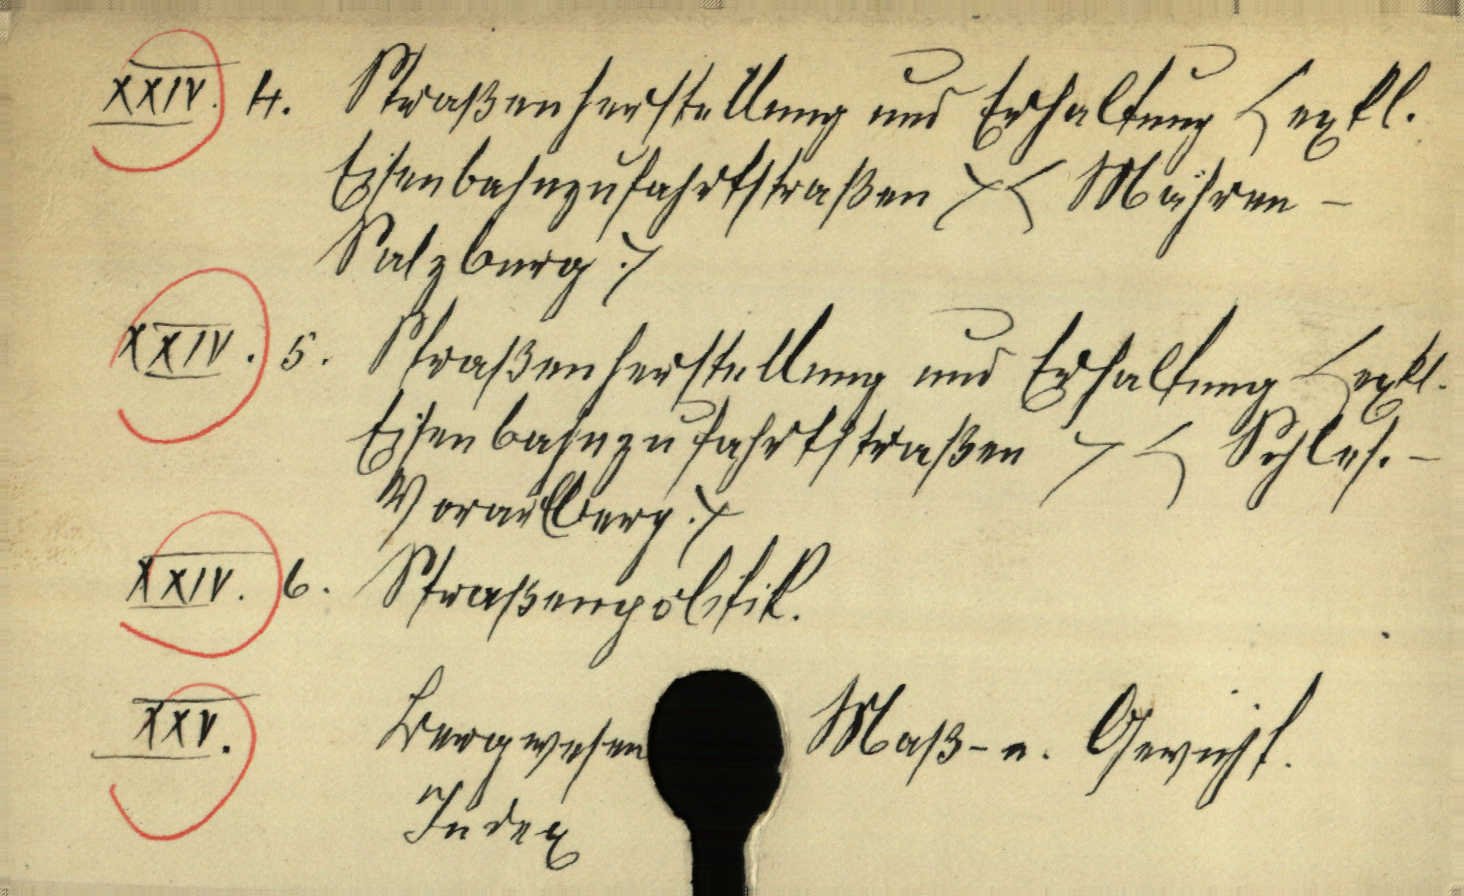 XXIV. 4. Straßenherstellung und Erhaltung (exkl.
Eisenbahnzufahrtstraßen) (Mähren –
Salzburg.)
XXIV. 5. Straßenherstellung und Erhaltung (exkl.
Eisenbahnzufahrtstraßen) (Schles. –
Vorarlberg.)
XXIV. 6. Straßenpolitik.
XXV. Bergwesen Maß- u. Gewicht.
Index